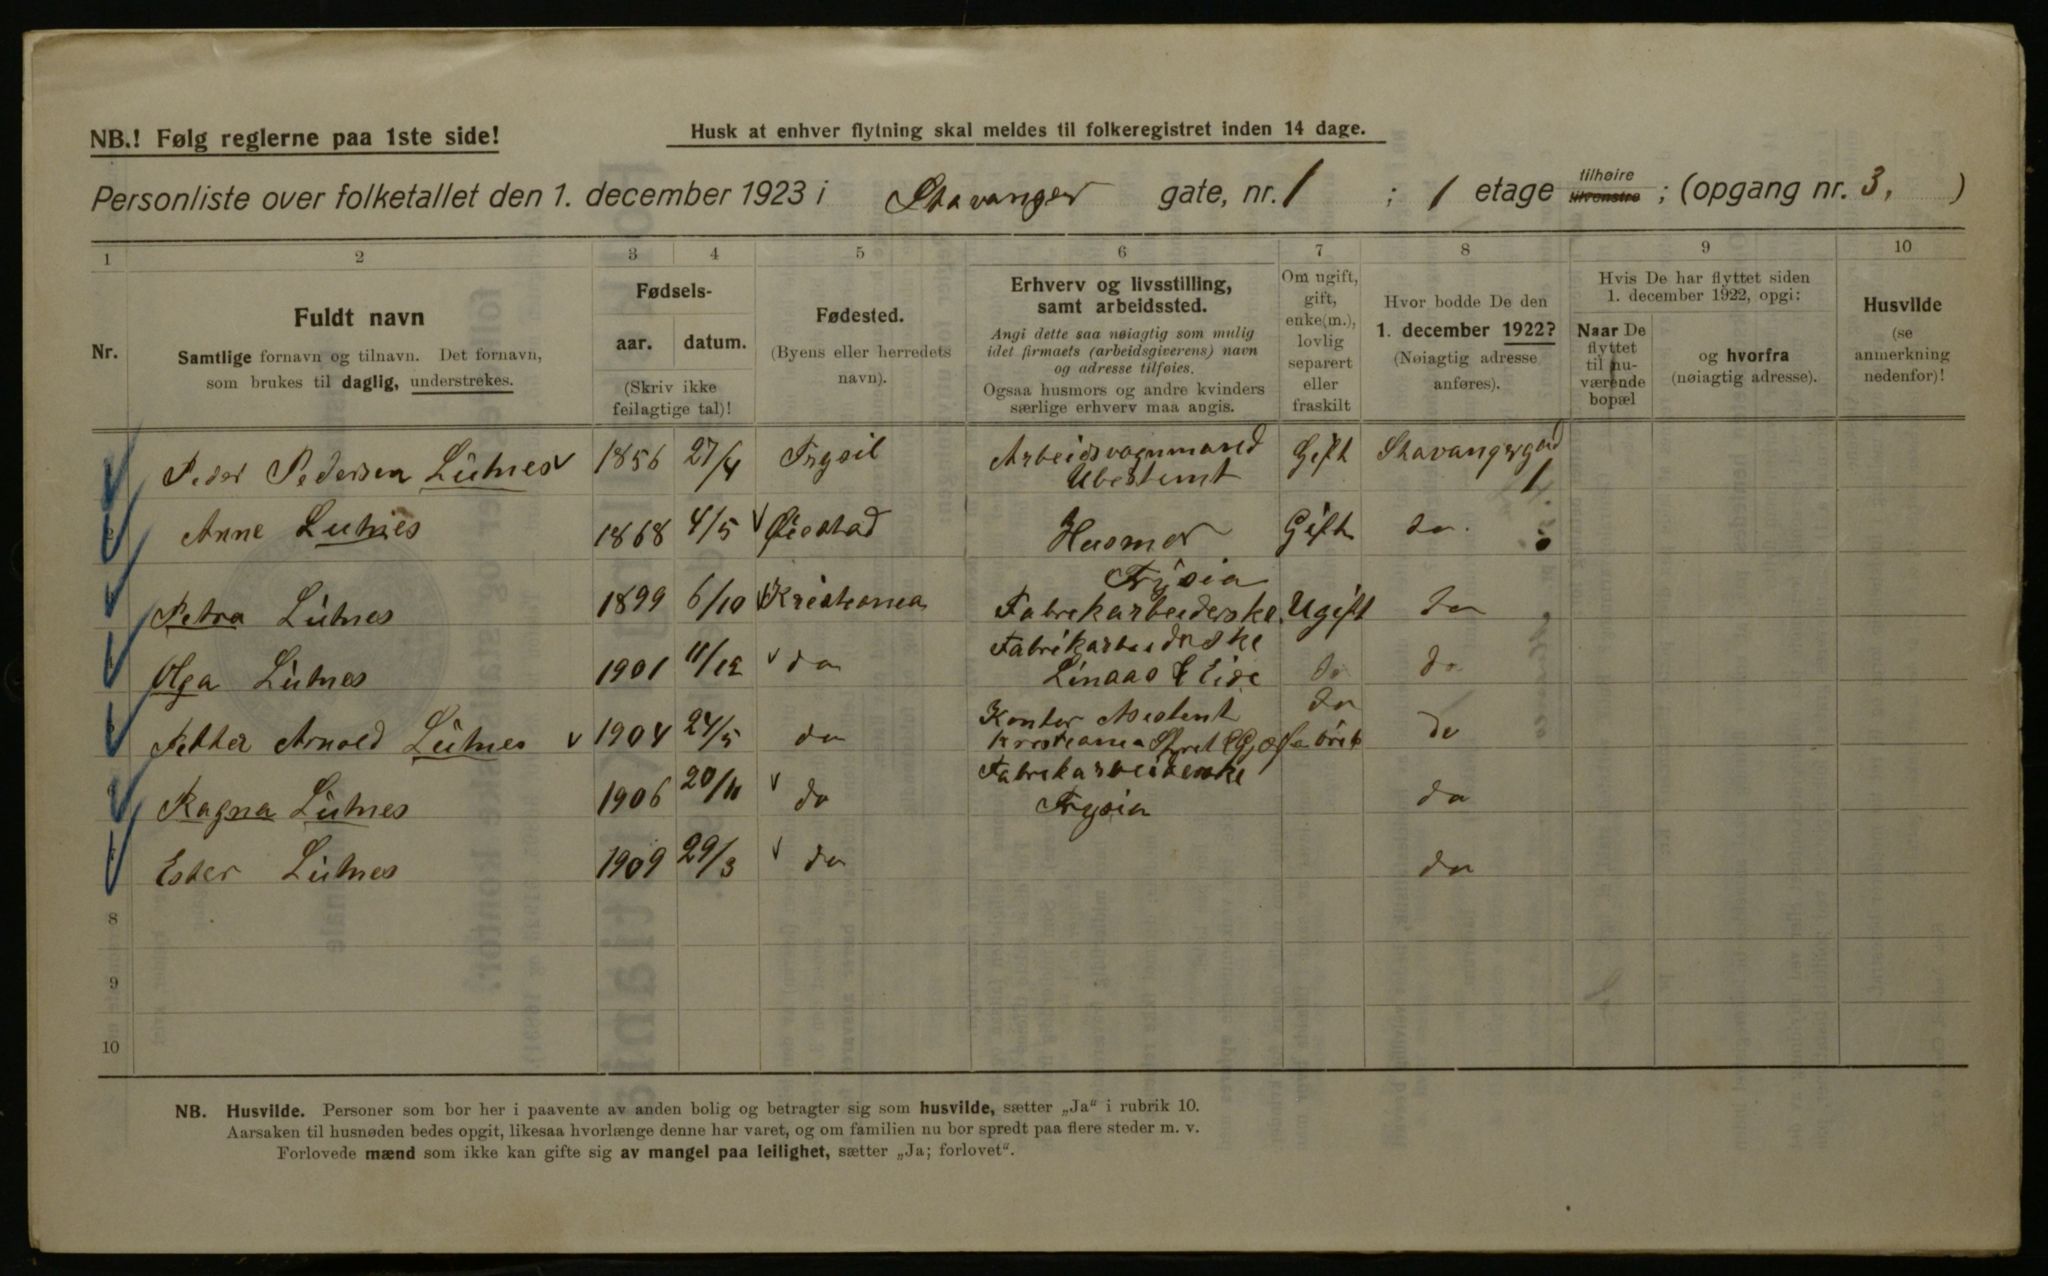 NB.! Følg reglerne paa 1ste side!
Husk at enhver flytning skal meldes til folkeregistret inden 14 dage.
Personliste over folketallet den 1. december 1923 i Stavanger gate, nr. 1 ; 1 etage tilhøire tilvenstre ; (opgang nr. 3, )
1 2 3 4 5 6 7 8 9 10
Nr.
Fuldt navn
Samtlige fornavn og tilnavn. Det fornavn,
som brukes til daglig, understrekes.
Fødsels-
aar. datum.
(Skriv ikke
feilagtige tal)!
Fødested.
(Byens eller herredets
navn).
Erhverv og livsstilling,
samt arbeidssted.
Angi dette saa nøiagtig som mulig
idet firmaets (arbeidsgiverens) navn
og adresse tilføies.
Ogsaa husmors og andre kvinders
særlige erhverv maa angis.
Om ugift,
gift,
enke(m.),
lovlig
separert
eller
fraskilt
Hvor bodde De den
1. december 1922?
(Nøiagtig adresse
anføres).
Hvis De har flyttet siden
1. december 1922, opgi:
Naar De
flyttet
til nu-
værende
bopæl
og hvorfra
(nøiagtig adresse).
Husvilde
(se
anmerkning
nedenfor)!
Peder Pedersen Lutnes 1856 27/4 Trysil Arbeidsvognmand Ubestemt Gift Stavangergad 1
Anne Lutnes 1868 4/5 Øiestad Husmor Gift do.
Petra Lutnes 1899 6/10 Kristiania Frysia Fabrikarbeiderske Ugift do
Olga Lutnes 1901 11/12 do Fabrikarbeiderske Linaas & Eide do do
Petter Arnold Lutnes 1904 24/5 do Kontor Assistent Kristiania Spret & Gjærfabrik do do
Ragna Lutnes 1906 20/11 do Fabrikarbeiderske Frysia do
Ester Lutnes 1909 29/3 do do
8
9
10
NB. Husvilde. Personer som bor her i paavente av anden bolig og betragter sig som husvilde, sætter „Ja“ i rubrik 10.
Aarsaken til husnøden bedes opgit, likesaa hvorlænge denne har varet, og om familien nu bor spredt paa flere steder m. v.
Forlovede mænd som ikke kan gifte sig av mangel paa leilighet, sætter „Ja; forlovet“.